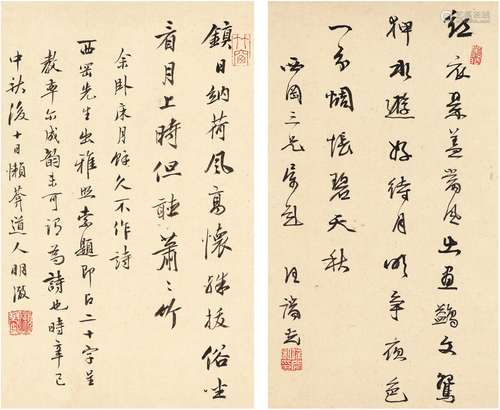 紅衣翠蓋當風出画鷁文鴛
狎水遊好待月明夜色
一分惆悵碧天秋
西岡三兄
汪
鎮日納荷風高懷殊拔俗坐
看月上時但聽蕭〻竹
余臥床月餘久不作詩
西岡先生出雅照索題即占二十字呈
教率尔成韵未可謂為詩也時辛巳
中秋後十日懶聾道人明澂